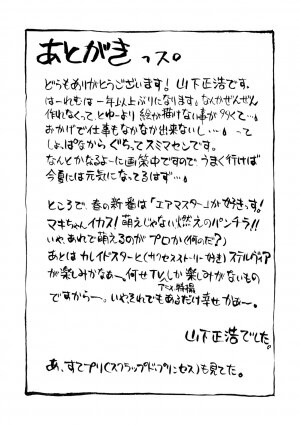 あとがきっス。
どうもありがとうございます! 山下正浩です。
はーれもは一年以上ぶりになります。なんかぜんぜん
作れなくって、とゆーより絵が描けない事が多くて…。
おかげで仕事もなかなか出来ないし…。って
しょっぱなからぐちってスミマセンです。
なんとかなるよーに画策中ですので、うまく行けば
今頃には元気になってるはず…。
ところで、春の新番は「エアマスター」が好きっす!
マキちゃんイカス! 萌えじゃない燃えのパンチラ!!
いや、あれで萌えるのがプロか(何のだ?)
あとはカレイドスターと(サクセスストーリー好き)ステルヴィア
が楽しみかなぁー。何せTVしか楽しみがないもの
アニメ、特撮
ですからー。いや、それでもあるだけ幸せかぁー。
山下正浩でした。
あ、すてプリ(スクラップドプリンセス)も見てた。